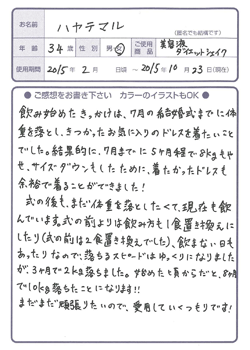 お名前 ハヤテマル
(匿名でも結構です)
年齢 34歳 性別 男・女 ご使用商品 美容液ダイエットシェイク
使用期間 2015年2月 日頃 ~ 2015年10月23日(現在)
●ご感想をお書き下さい カラーのイラストもOK●
飲み始めたきっかけは、7月の結婚式までに体
重を落とし、きつかったお気に入りのドレスを着たいこと
でした。結果的に、7月までに5ヶ月程で8kgもや
せ、サイズダウンもしたために、着たかったドレスも
余裕で着ることができました!
式の後も、まだ体重を落としたくて、現在も飲
んでいます。式の前よりは飲み方も1食置き換えに
したり(式の前は2食置き換えでした)、飲まない日も
あったりなので、落ちるスピードはゆっくりになりました
が、3ヶ月で2kg落ちました。始めた頃からだと、8ヶ月
で10kg落ちたことになります!!
まだまだ頑張りたいので、愛用していくつもりです!